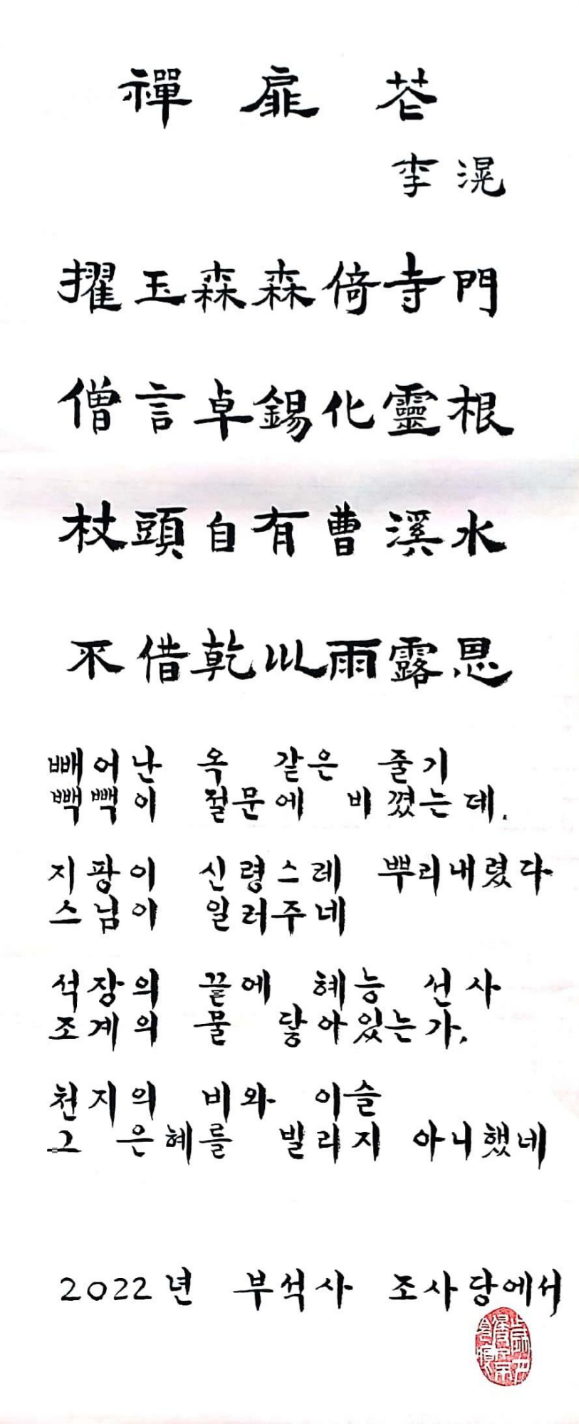 禪扉花
李滉
擢玉森森倚寺門
僧言卓錫化靈根
杖頭自有曹溪水
不借乾巛雨露恩
빼어난 옥 같은 줄기
빽빽이 절문에 비꼈는데,
지팡이 신령스레 뿌리내렸다
스님이 일러주네
석장의 끝에 혜능 선사
조계의 물 닿아있는가,
천지의 비와 이슬
그 은혜를 빌리지 아니했네
2022년 부석사 조사당에서